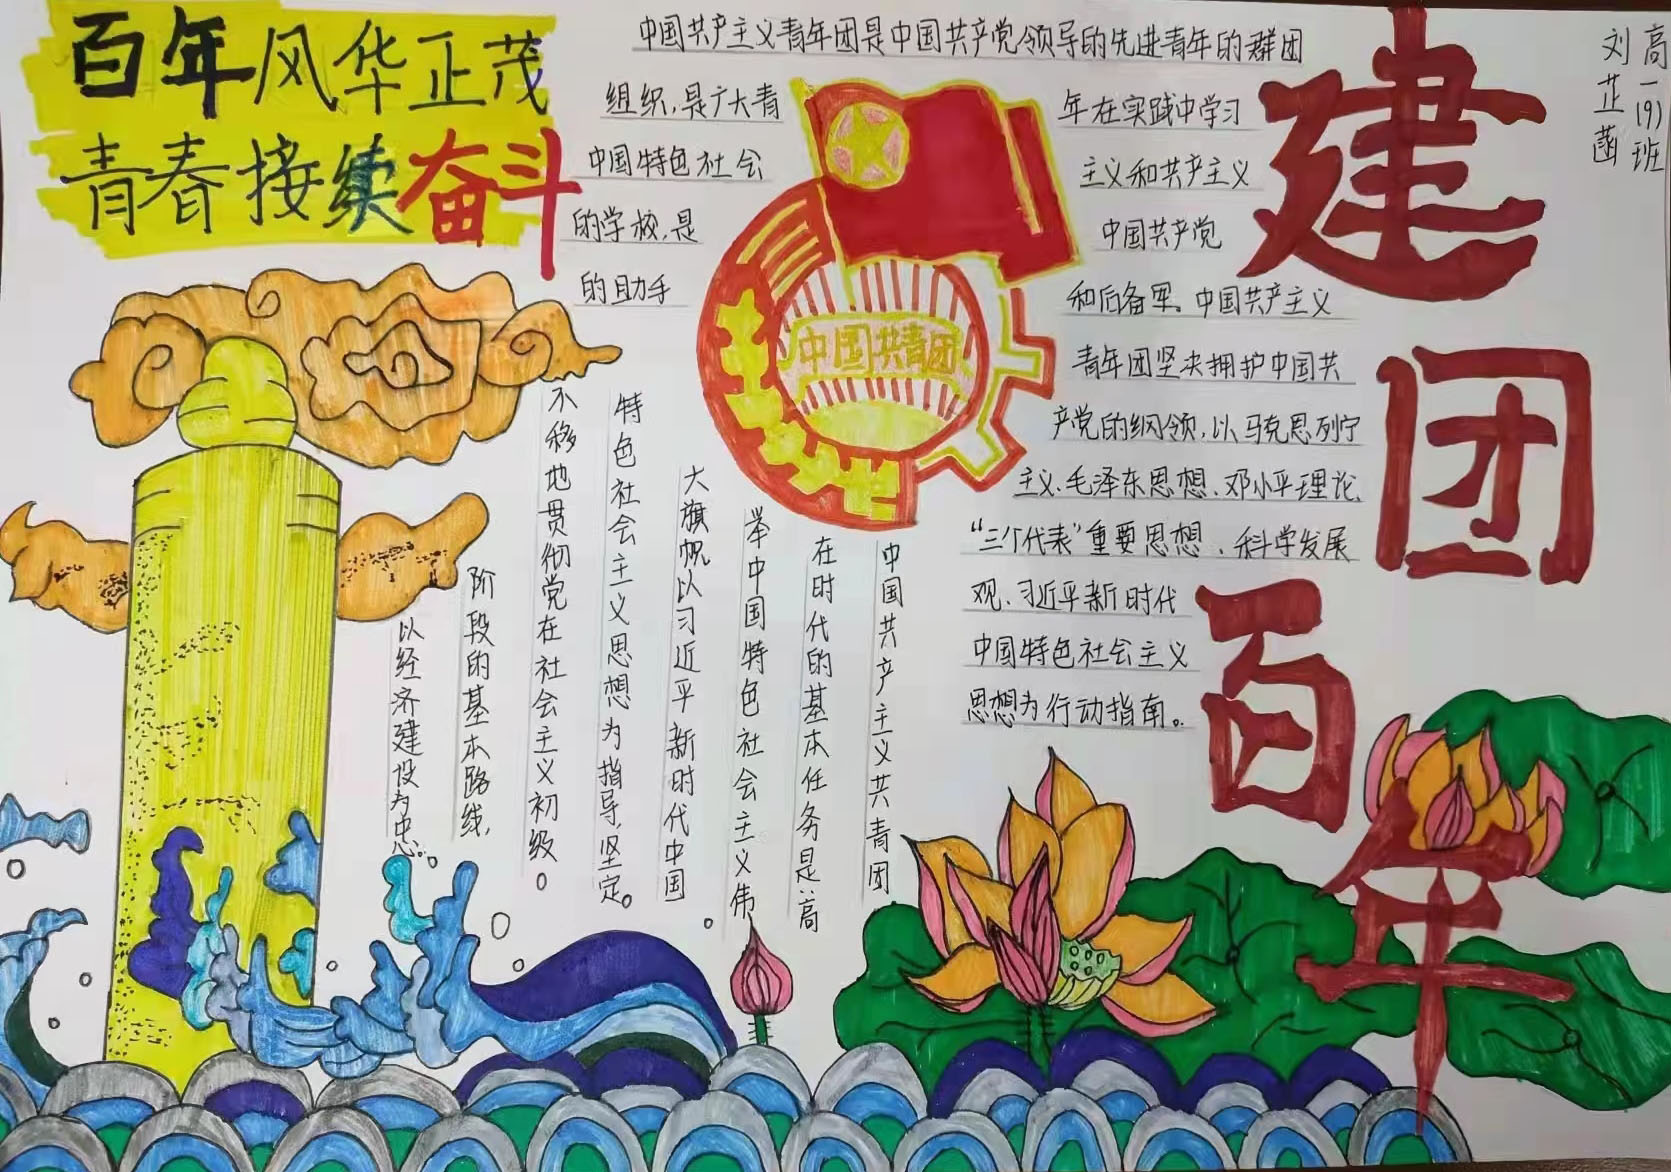 百年风华正茂
青春接续奋斗
中国共产主义青年团是中国共产党领导的先进青年的群团
组织,是广大青 年在实践中学习
中国特色社会 主义和共产主义
的学校,是 中国共产党
的助手 和后备军。中国共产主义
青年团坚决拥护中国共
产党的纲领,以马克思列宁
主义、毛泽东思想、邓小平理论、
“三个代表”重要思想、科学发展
观、习近平新时代
中国特色社会主义
思想为行动指南。
中国共青团
建团百年
高一(9)班
刘芷菡
中国共产主义共青团
在时代的基本任务是:高
举中国特色社会主义伟
大旗帜以习近平新时代中国
特色社会主义思想为指导,坚定。
不移地贯彻党在社会主义初级。
阶段的基本路线,
以经济建设为忠。